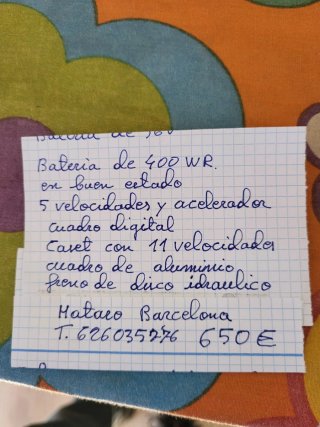 Bateria de 400 WR.
en buen estado
5 velocidades y acelerador
cuadro digital
Caset con 11 velocidades
cuadro de aluminio
freno de disco idraulico
Mataro Barcelona
T. 626035776 650€